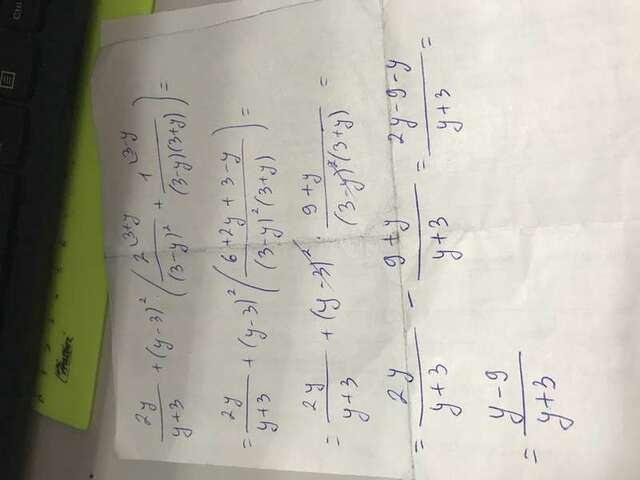 2y/(y+3) + (y-3)² (2/(3-y)² + 1/((3-y)(3+y))) = 3+y 3-y
= 2y/(y+3) + (y-3)² ((6+2y+3-y)/((3-y)²(3+y))) =
= 2y/(y+3) + (y-3)² · (9+y)/((3-y)²(3+y)) =
= 2y/(y+3) - (9+y)/(y+3) = (2y-9-y)/(y+3) =
= (y-9)/(y+3)
Ctrl